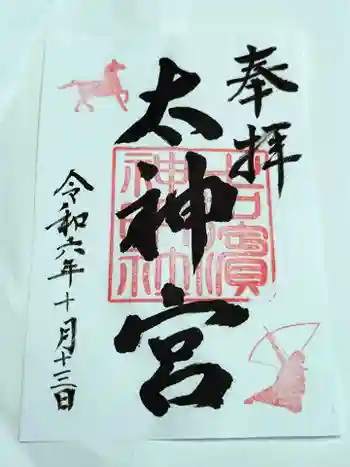 奉拝
太神宮
吉濱
神明
神社
令和六年十月十三日